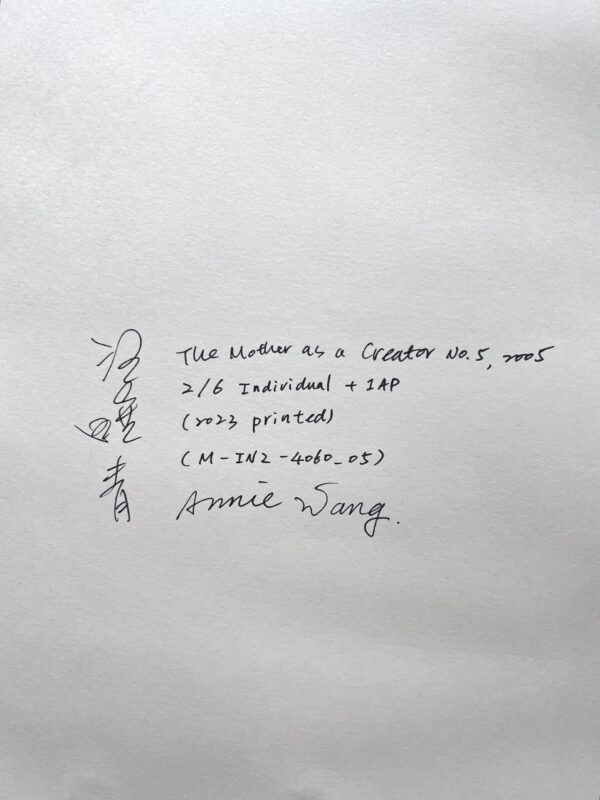 汪曉青
The Mother as a Creator No.5, 2005
2/6 Individual + 1AP
(2023 printed)
(M-IN2-4060_05)
Annie Wang.